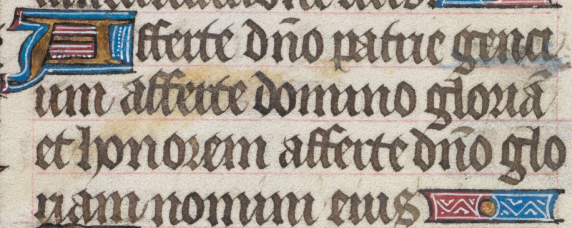 Afferte dño patrie genci
um afferte domino gloriā
et honorem afferte dño glo
riam nomini eius